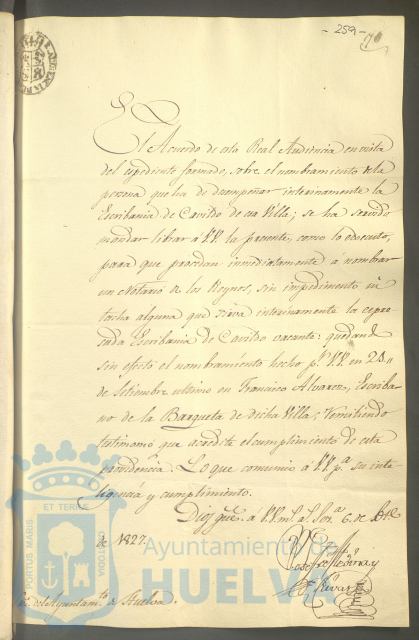 - 259 -
El Acuerdo de esta Real Audiencia en vista
del espediente formado, sobre el nombramiento de la
persona que ha de desempeñar interinamente la
Escribania de Cavildo de esa Villa; se ha servido
mandar librar á VV. la presente, como lo ejecuto,
para que procedan inmediatamente a nombrar
un Notario de los Reynos, sin impedimento ni
tacha alguna que sirva interinamente la espre-
sada Escribania de Cavildo vacante: quedando
sin efecto el nombramiento hecho pr. VV. en 20
de Setiembre ultimo en Francisco Alvarez, Escriba-
no de la Barqueta de dicha Villa; remitiendo
testimonio que acredite el cumplimiento de esta
providencia. Lo que comunico á VV. pa. su inte-
ligencia y cumplimiento.
Dios gue. á VV. ms. as. 6 de
de 1827.
del Ayuntamto. de Huelva.
PORTUS MARIS
ET TERRE
CUSTODIA
Ayuntamiento de
HUELVA